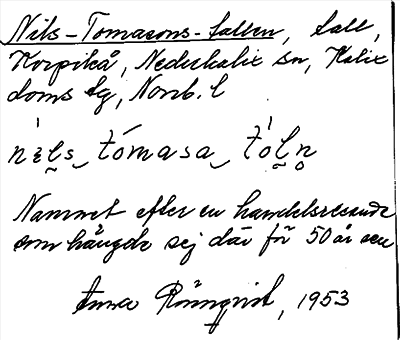 Nils-Tomasons-tallen, tall,
Korpikå, Nederkalix sn, Kalix
doms tg, Norrb. l
nils tómasa tóln
Namnet efter en handelsresande
som hängde sej där för 50 år sen
Anna Rönnqvist, 1953